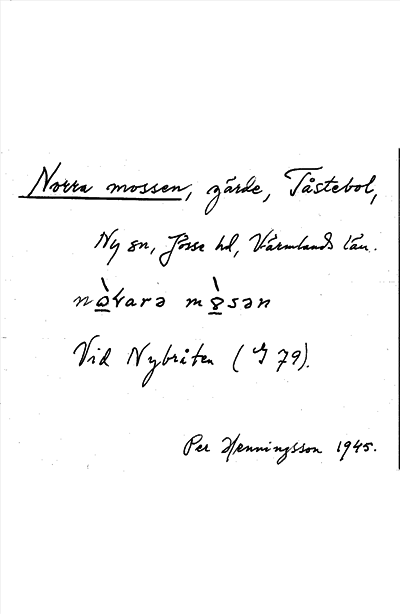 Norra mossen, gärde, Tåstebol,
Ny sn, Jösse hd, Värmlands län.
Vid Nybråten (I 79).
Per Henningsson 1945.